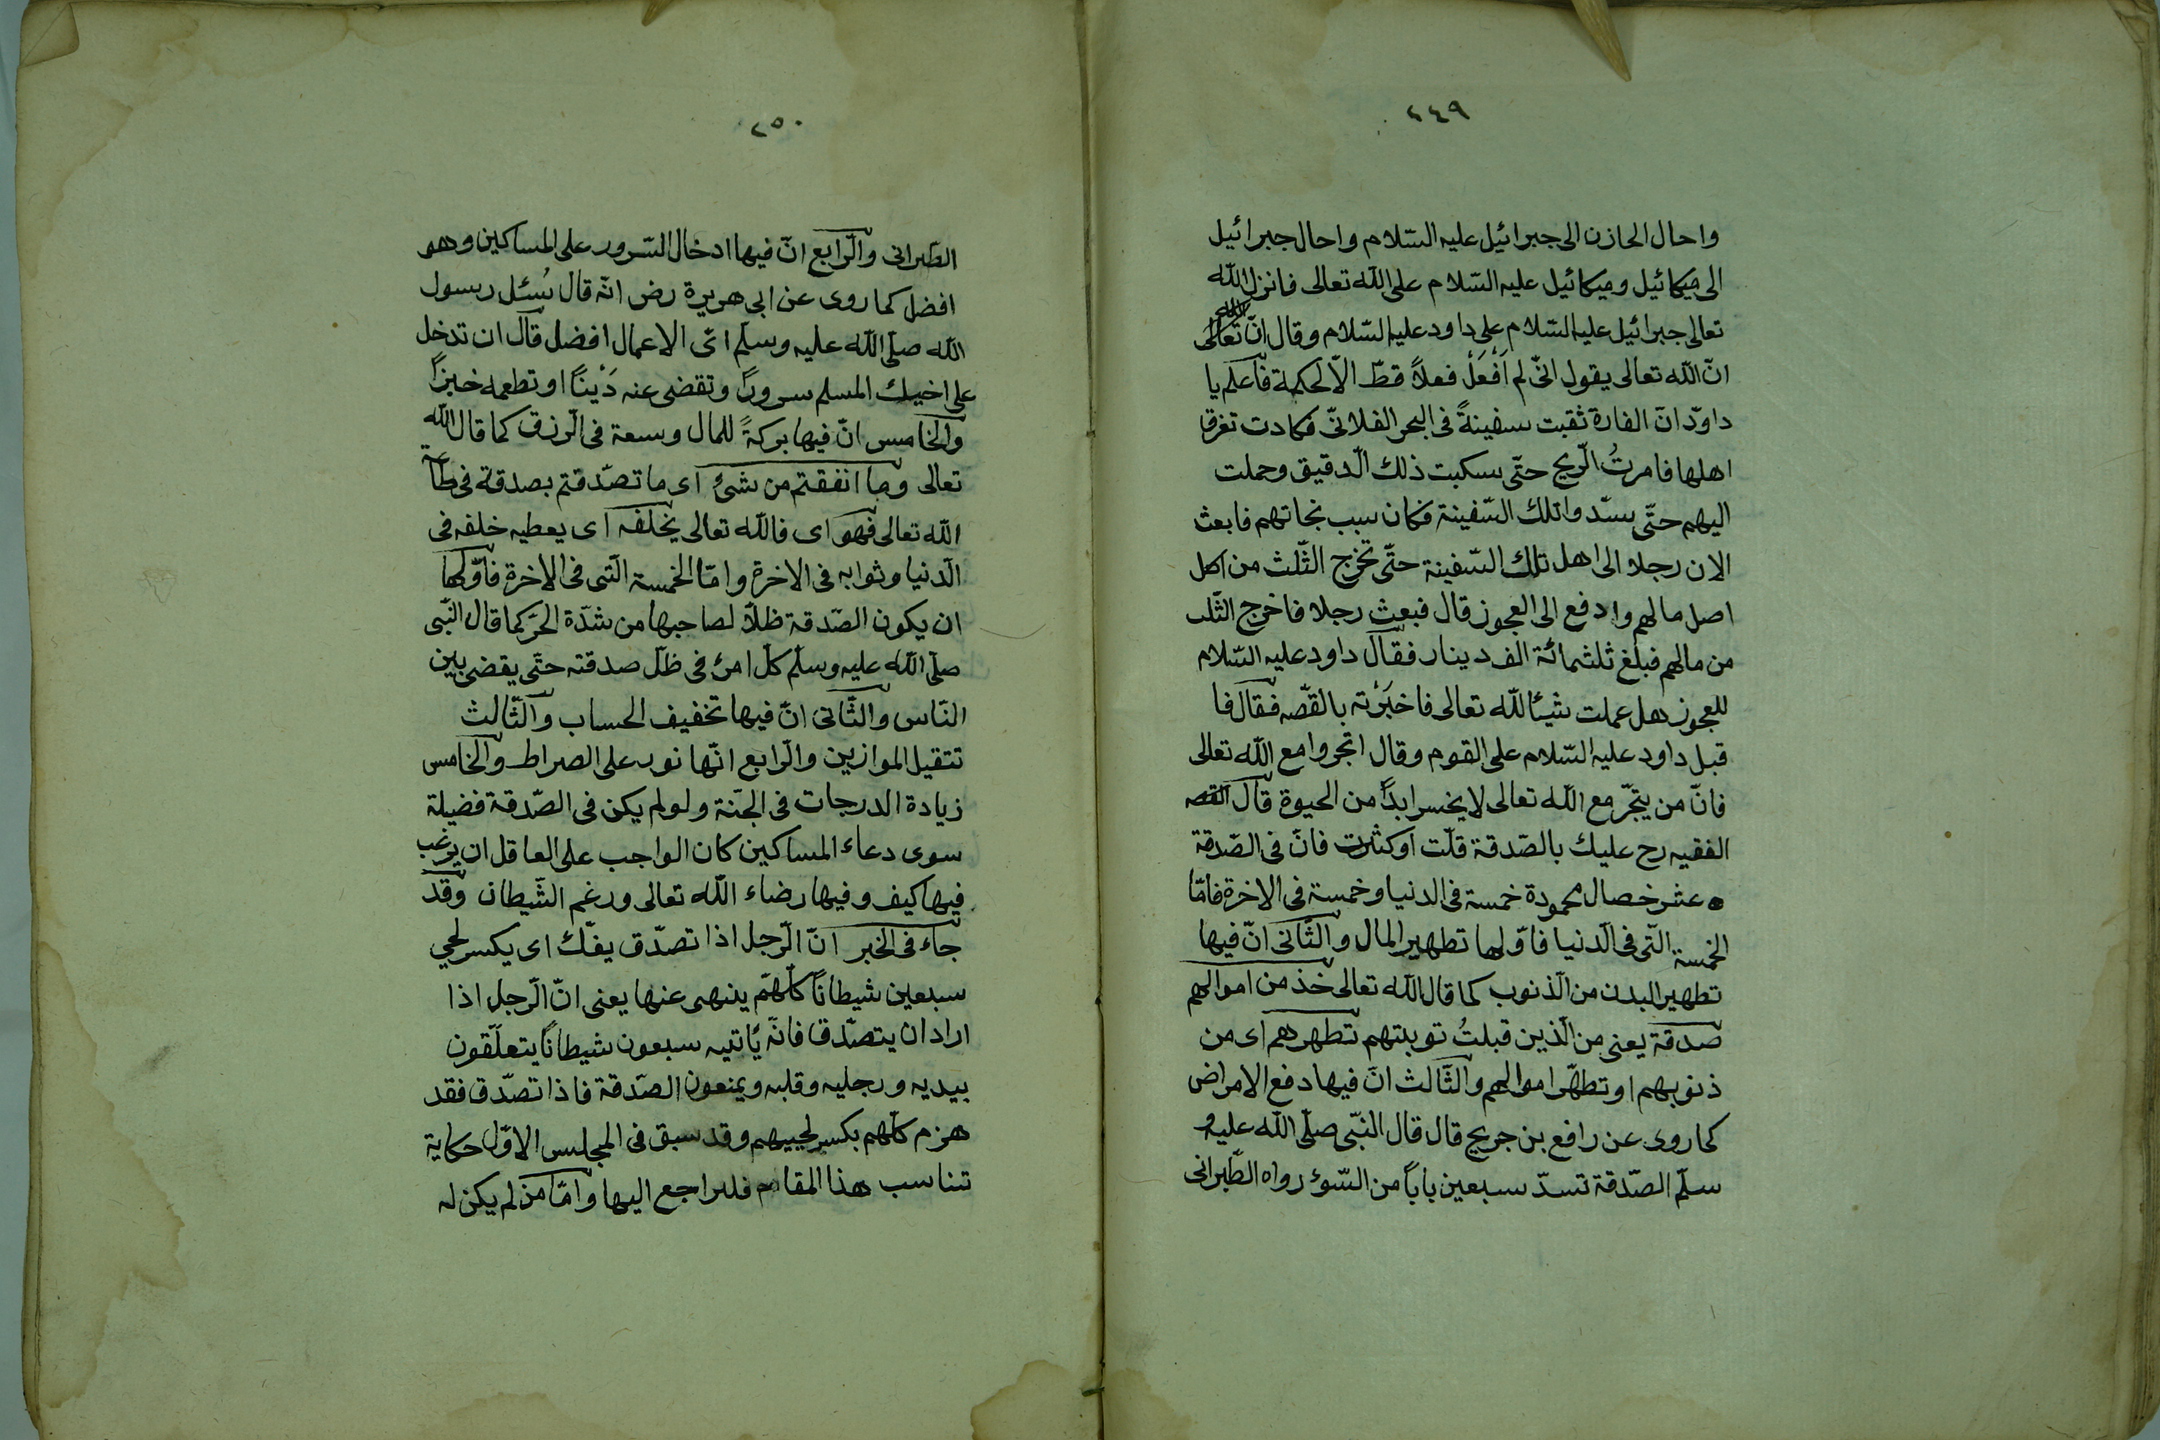 ٢٤٩
واحال الخازن الى جبرائيل عليه السّلام واحال جبرائيل
الى ميكائيل وميكائيل عليه السّلام على الله تعالى فانزل الله
تعالى جبرائيل عليه السّلام على داود عليه السّلام وقال انّ الله تعالى
انّ الله تعالى يقول انّى لم اَفْعَلْ فعلاً قطّ الّا لحكمة فاعلم يا
داودّ انّ الفارة ثقبت سفينةً فى البحر الفلانىّ فكادت تغرق
اهلها فامرتُ الرّيح حتّى سكبت ذلك الدّقيق وحملت
اليهم حتّى سدّوا تلك السّفينة فكان سبب نجاتهم فابعث
الان رجلا الى اهل تلك السّفينة حتّى تخرج الثّلث من اكل
اصل مالهم وادفع الى العجوز قال فبعث رجلا فاخرج الثّلث
من مالهم فبلغ ثلثمائة الف دينار فقال داود عليه السّلام
للعجوز هل عملت شيئا لله تعالى فاخبَرْته بالقصّه فقال فا
قبل داود عليه السّلام على القوم وقال اتجروا مع الله تعالى
فانّ من يتجّر مع الله تعالى لا يخسر ابداً من الحيوة قال القصه
الفقيه رح عليك بالصّدقة قلّت او كثرت فانّ فى الصّدقة
عشر خصال محمودة خمسة فى الدنيا وخمسة فى الاخرة فامّا
الخمسة الّتى فى الدّنيا فاوّلها تطهير المال والثّانى انّ فيها
تطهير البدن من الذّنوب كما قال الله تعالى خذ من اموالهم
صدقة يعنى من الّذين قبلتُ توبتهم تطهرهم اى من
ذنوبهم او تطهّر اموالهم والثّالث انّ فيها دفع الامراض
كما روى عن رافع بن جريج قال قال النّبى صلّى الله عليه و
سلّم الصّدقة تسدّ سبعين باباً من السّوء رواه الطّبرانى
٢٥٠
الطّبرانى والرّابع انّ فيها ادخال السّرور على المساكين وهو
افضل كما روى عن ابى هريرة رض انّه قال سُئل رسول
الله صلّى الله عليه وسلّم اىّ الاعمال افضل قال ان تدخل
على اخيك المسلم سروراً وتقضى عنه دَيْناً او تطعمه خبزاً
والخامس انّ فيها بركةً للمال وسعة فى الرّزق كما قال الله
تعالى وما انفقتم من شىء اى ما تصدّقتم بصدقة فى طا
الله تعالى فهو اى فالله تعالى يخلفه اى يعطيه خلفه فى
الدّنيا وثوابه فى الاخرة وامّا الخمسة الّتى فى الاخرة فاوّلها
ان يكون الصّدقة ظلاّ لصاحبها من شدّة الحرّ كما قال النّبى
صلّى الله عليه وسلّم كلّ امرئ فى ظلّ صدقته حتّى يقضى بين
النّاس والثّانى انّ فيها تخفيف الحساب والثّالث
تثقيل الموازين والرّابع انّها نور على الصراط والخامس
زيادة الدرجات فى الجنّة ولو لم يكن فى الصّدقة فضيلة
سوى دعاء المساكين كان الواجب على العاقل ان يرغب
فيها كيف وفيها رضاء الله تعالى ورغم الشّيطان وقد
جاء فى الخبر انّ الرّجل اذا تصدّق يفكّ اى يكسر لحيي
سبعين شيطاناً كلّهم ينهى عنها يعنى انّ الرّجل اذا
اراد ان يتصدّق فانّه يأتيه سبعون شيطاناً يتعلّقون
بيديه ورجليه وقلبه ويمنعون الصّدقة فاذا تصدّق فقد
هزم كلّهم بكسر لحييهم وقد سبق فى المجلس الاوّل حكاية
تناسب هذا المقام فليراجع اليها وامّا من لم يكن له